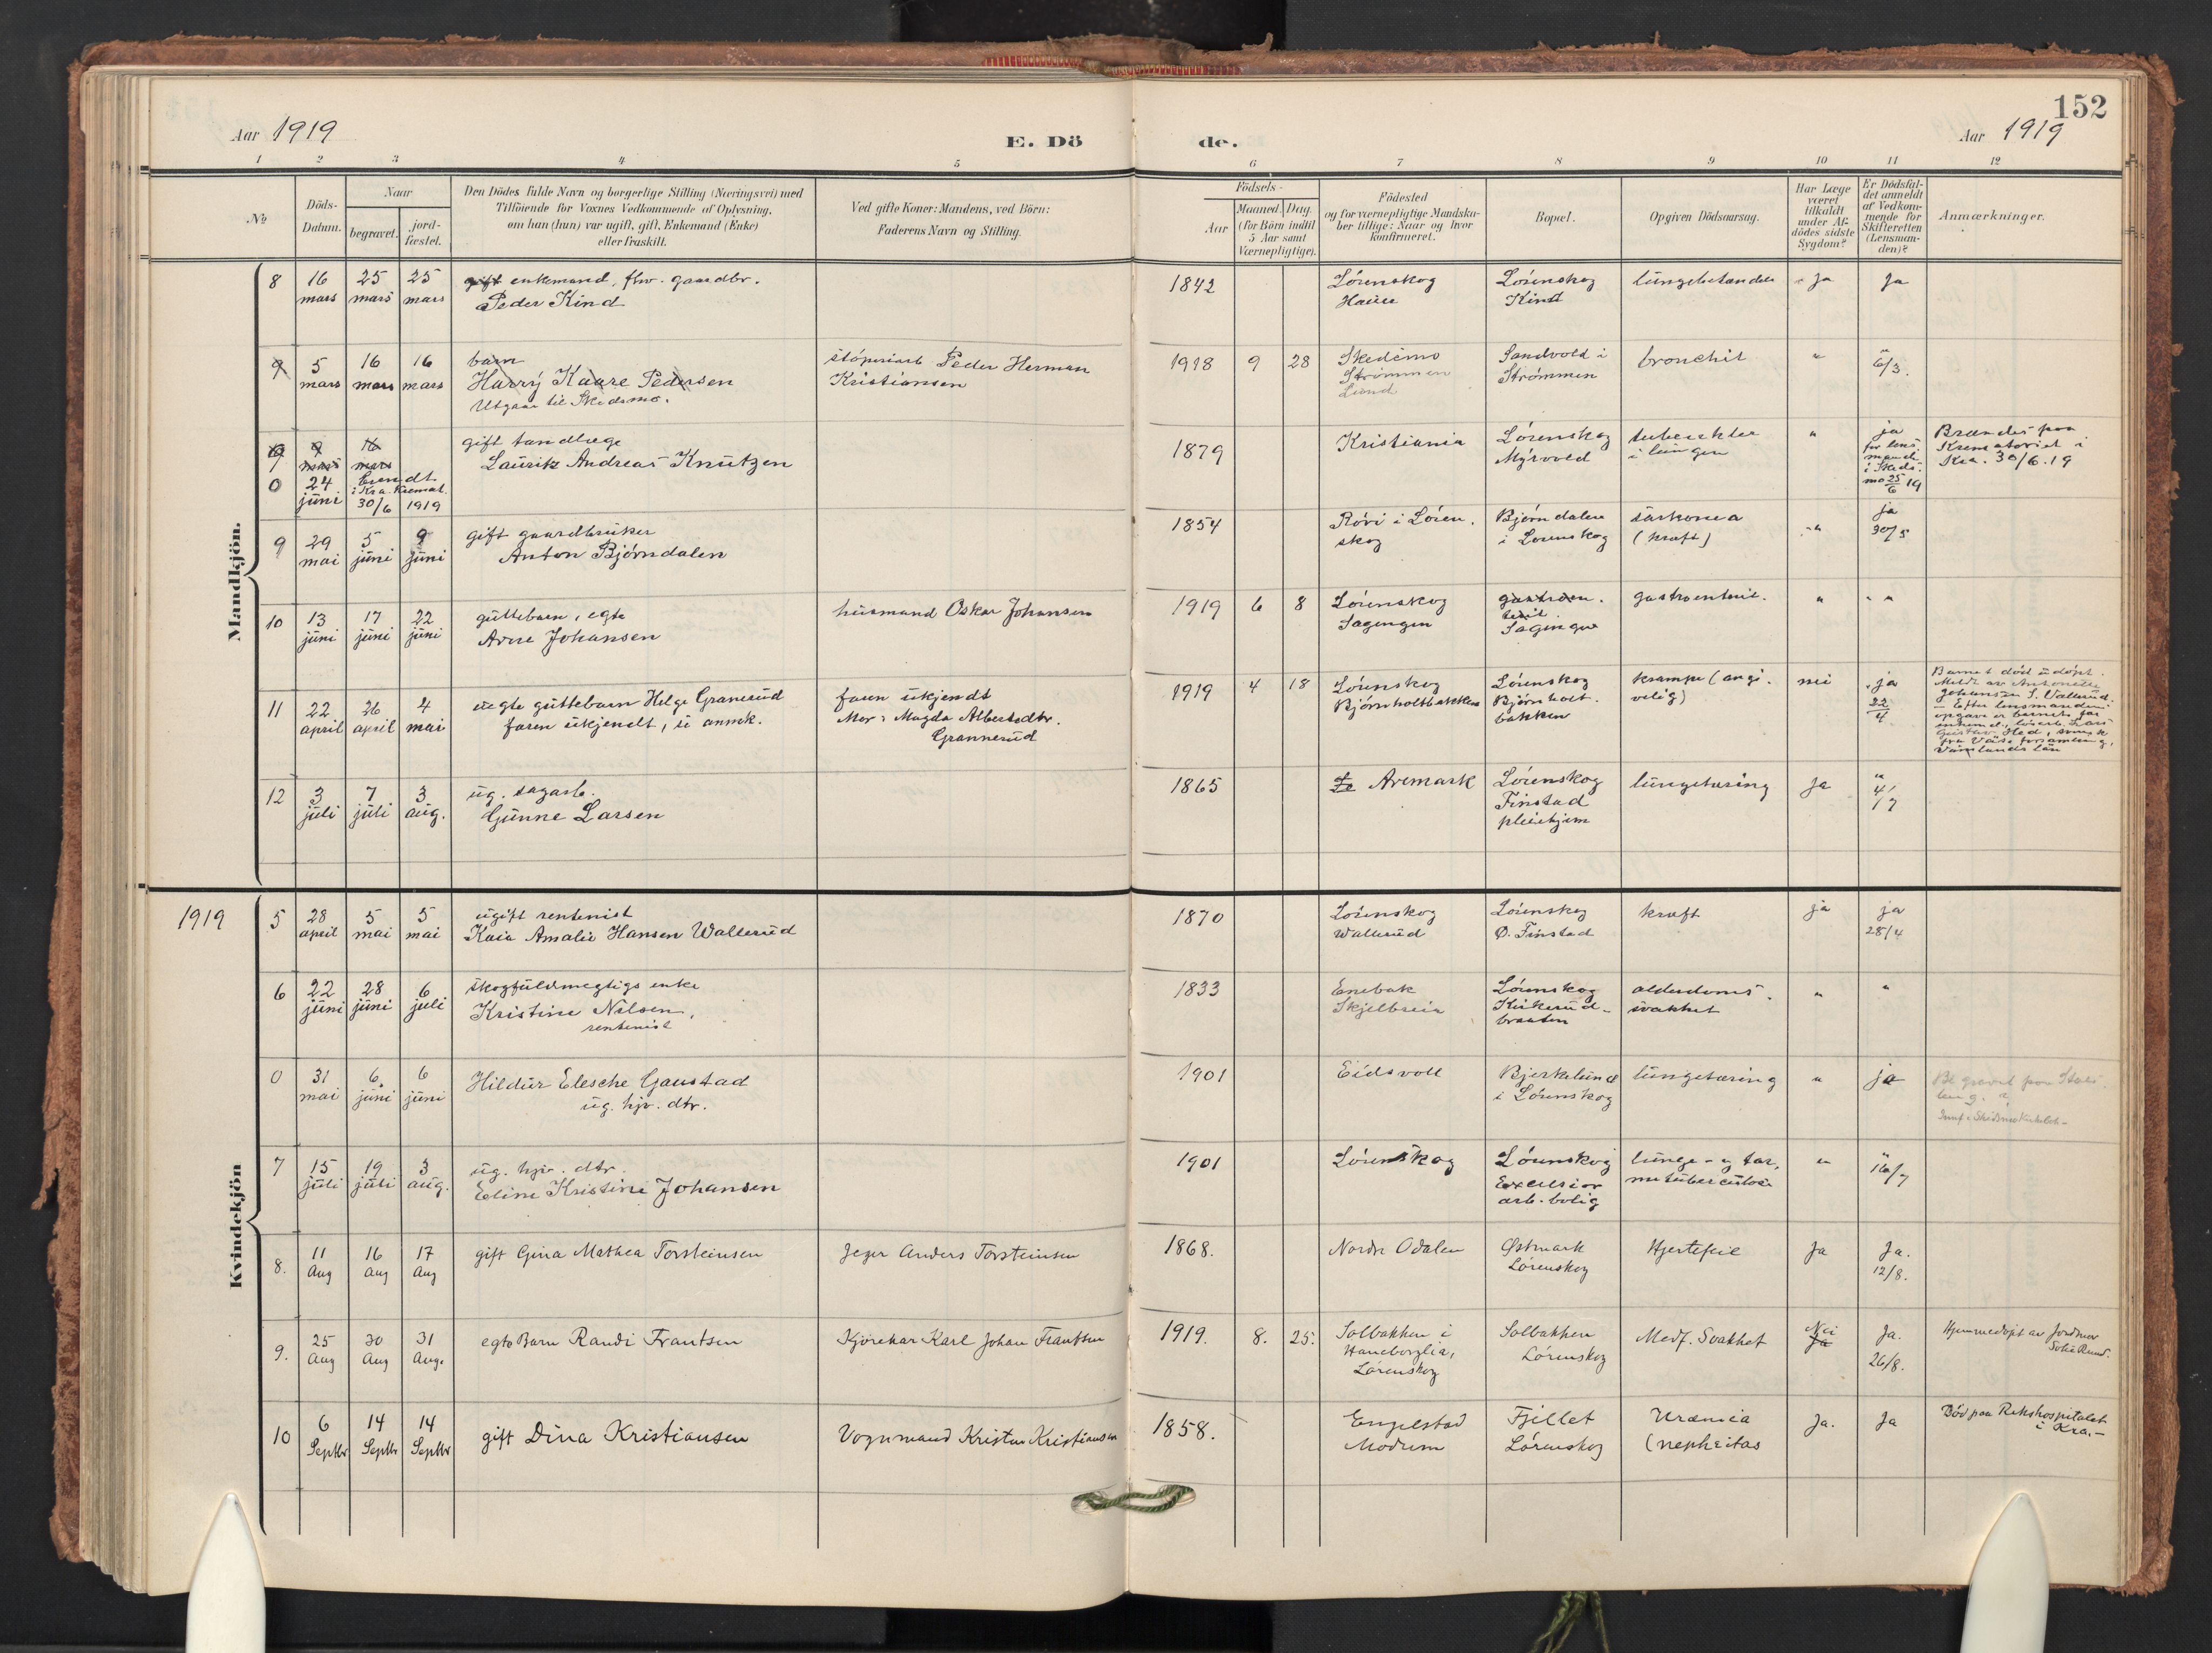 152
Aar 1919
E. Dö
de.
Aar 1919
1 2 3 4 5 6 7 8 9 10 11 12
No
Döds-
Datum.
Naar
begravet.
jord-
fæstet.
Den Dödes fulde Navn og borgerlige Stilling (Næringsvei) med
Tilföiende for Voxnes Vedkommende af Oplysning,
om han (hun) var ugift, gift, Enkemand (Enke)
eller fraskilt.
Ved gifte Koner: Mandens, ved Börn:
Faderens Navn og Stilling.
Födsels-
Aar
Maaned. Dag.
(for Börn indtil
5 Aar samt
Værnepligtige).
Födested
og for værnepligtige Mandska-
ber tillige: Naar og hvor
konfirmeret.
Bopæl.
Opgiven Dödsaarsag.
Har Læge
været
tilkaldt
under Af-
dödes sidste
Sygdom?
Er Dödsfal-
det anmeldt
af Vedkom-
mende for
Skifteretten
(Lensman-
den)?
Anmærkninger.
Mandkjön.
8
16
mars
25
mars
25
mars
gift enkemand, fhv. gaardbr.
Peder Kind
1842
Lørenskog
Lørenskog
Kind
Ja
Ja
9
5
mars
16
mars
16
mars
barn
Harry Kaare Pedersen
Utgaar til Skedsmo.
støperiarb Peder Herman
Kristiansen
1918 9 28
Skedsmo
Strømmen
Lund
Sandvold i
Strømmen
bronchit
"
"
6/3.
9
mars
16
mars
0
24
juni
brendt
i Kra. Kremat.
30/6 1919
gift tandlæge
Lauritz Andreas Knutzen
1879
Kristiania
Lørenskog
Myrvold
tuberkler
i lungen
"
ja
for lens
mand
i Skeds-
mo 25/6 19
Brændes paa
Krematoriet i
Kra. 30/6.19
9
29
mai
5
juni
9
juni
gift gaardbruker
Anton Bjørndalen
1854
Røvi i Løren.
skog
Bjørndalen
i Lørenskog
sarkoma
(kræft)
"
ja
30/5
10
13
juni
17
juni
22
juni
guttebarn, egte
Arne Johansen
husmand Oskar Johansen
1919 6 8
Lørenskog
Sagengen
Lørenskog
Sagengen
gastroenterit.
"
"
11
22
april
26
april
4
mai
uegte guttebarn Helge Granerud
faren ukjendt, u annk.
faren ukjendt
Mor: Magda Albertsdtr.
Grannerud
1919 4 18
Lørenskog
Bjørnholtbakken
Lørenskog
Bjørnholt.
bakken
krampe (angi.
velig)
nei
ja
22
4
Barnet død udøpt.
Meldt av Antonette
Johansen S. Wallerud.
Efter lensmandens
opgave er barnets far
12
3
juli
7
juli
3
aug.
ug. sagarb.
Gunne Larsen
1865
Aremark
Lørenskog
Finstad
pleiehjem
lungetæring
ja
"
4/7
1919
Kvindekjön
5
28
april
5
mai
5
mai
ugift rentenist
Kaia Amalie Hansen Wallerud
1870
Lørenskog
Wallerud
Lørenskog
Ø. Finstad
kræft
ja
ja
28/4
6
22
juni
28
juni
6
juli
skogfuldmegtigs enke
Kristine Nilsen,
rentenist
1833
Enebak
Skjelbreia
Lørenskog
Kirkerud-
braaten
alderdoms.
svakhet
"
"
0
31
mai
6
juni
6
juni
Hildur Elesche Gaustad
ug. hjv. dtr.
1901
Eidsvoll
Bjerkelund
i Lørenskog
lungetæring
"
ja
7
15
juli
19
juli
3
aug.
ug. hjv. dtr.
Eline Kristine Johansen
1901
Lørenskog
Lørenskog
Excelsior
arb. bolig
lunge- og tar,
mtuberculose
"
"
16/7
8.
11
Aug
16
Aug
17
Aug
gift Gina Mathea Torsteinsen
Jeger Anders Torsteinsen
1868.
Nordre Odalen
Østmark
Lørenskog
Hjertefeil
Ja
Ja.
12/8.
9.
25
Aug
30
Aug
31
Aug.
egte Barn Randi Frantsen
Kjørekar Karl Johan Frantsen
1919. 8. 25.
Solbakken i
Haneborglia,
Lørenskog
Solbakken
Lørenskog
Medf. Svakhet
Nei
Ja
Ja.
26/8.
Hjemmedøpt av Jordmor
Sofie Ruud.
10
6
Septbr
14
Septbr
14
Septbr
gift Dina Kristiansen
Vognmand Kristen Kristiansen
1858.
Engelstad
Modum
Fjellet
Lørenskog
Uræmia
(nephritas
Ja.
Ja
Død paa Rikshospitalet
i Kra.-